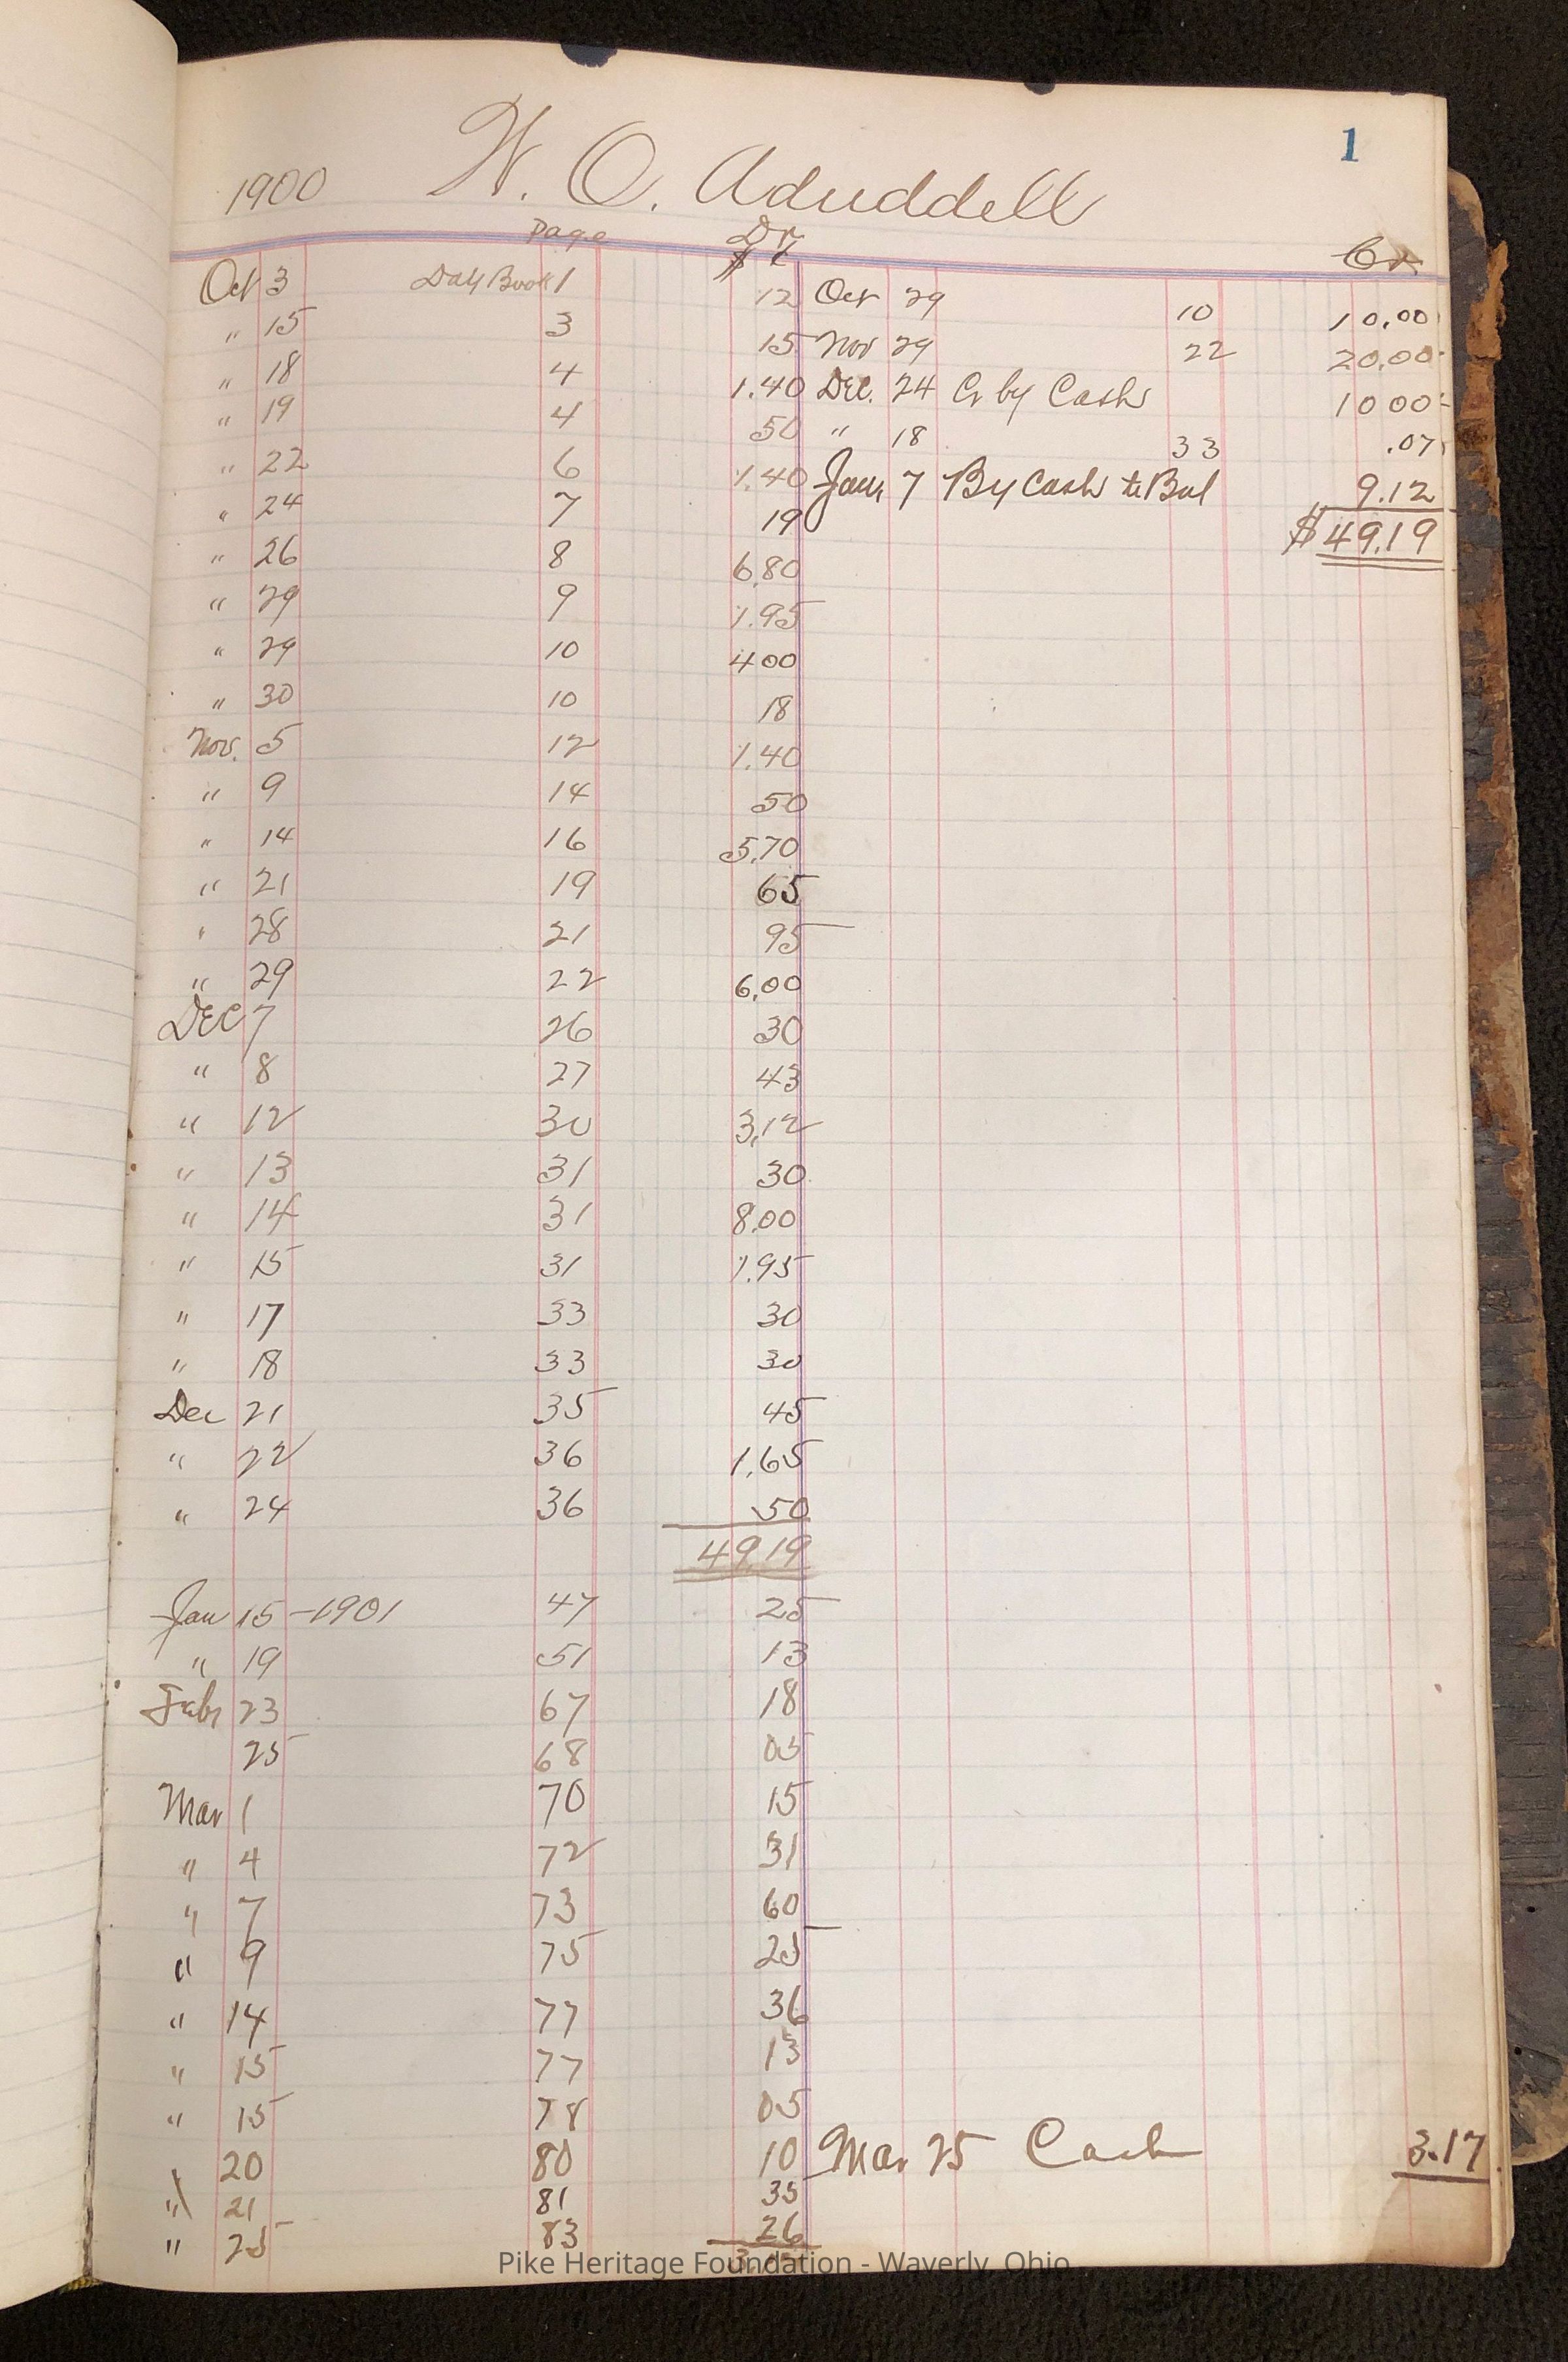 1
1900 W. O. Aduddell
Page Dr Cr
$ ¢
Oct 3 Day Book 1 12 Oct 29 10 10.00
" 15 3 15 Nov 29 22 20.00
" 18 4 1.40 Dec. 24 Cr by Cash 10 00
" 19 4 50 " 18 33 .07
" 22 6 1.40 Jany 7 By Cash to Bal 9.12
" 24 7 19 $49.19
" 26 8 6.80
" 29 9 1.95
" 29 10 4 00
" 30 10 18
Nov. 5 12 1.40
" 9 14 50
" 14 16 5.70
" 21 19 65
" 28 21 95
" 29 22 6.00
DEC 7 26 30
" 8 27 43
" 12 30 3.12
" 13 31 30
" 14 31 8.00
" 15 31 1.95
" 17 33 30
" 18 33 30
Dec 21 35 45
" 22 36 1.65
" 24 36 50
49.19
Jan 15 - 1901 47 25
" 19 51 13
Febr 23 67 18
25 68 05
Mar 1 70 15
" 4 72 31
" 7 73 60
" 9 75 25
" 14 77 36
" 15 77 13
" 15 78 05
" 20 80 10 Mar 25 Cash 3.17
" 21 81 35
" 25 83 26
Pike Heritage Foundation - Waverly, Ohio